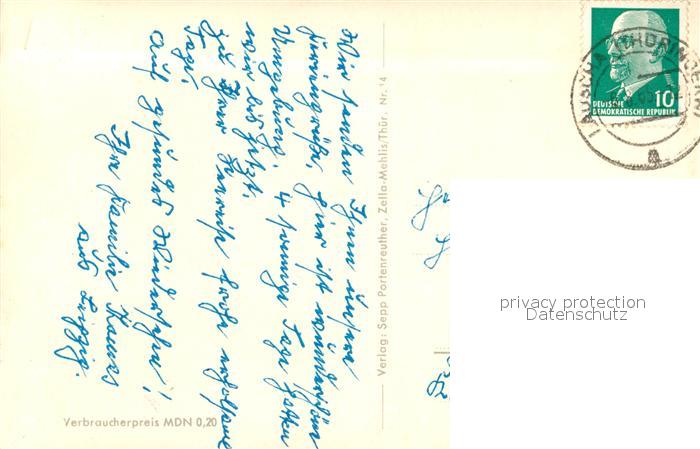 Wir senden Ihnen unsere
Feriengrüße. Hier ist wunderschöne
Umgebung. 4 sonnige Tage hatten
wir bis jetzt.
zu Ihrer frohe erholsame
Tage.
Auf gesundes Wiedersehen!
Ihre Familie
aus Leipzig.
Verlag: Sepp Portenreuther, Zella-Mehlis/Thür. Nr. 14
Verbraucherpreis MDN 0,20
DEUTSCHE
DEMOKRATISCHE REPUBLIK
10
privacy protection
Datenschutz